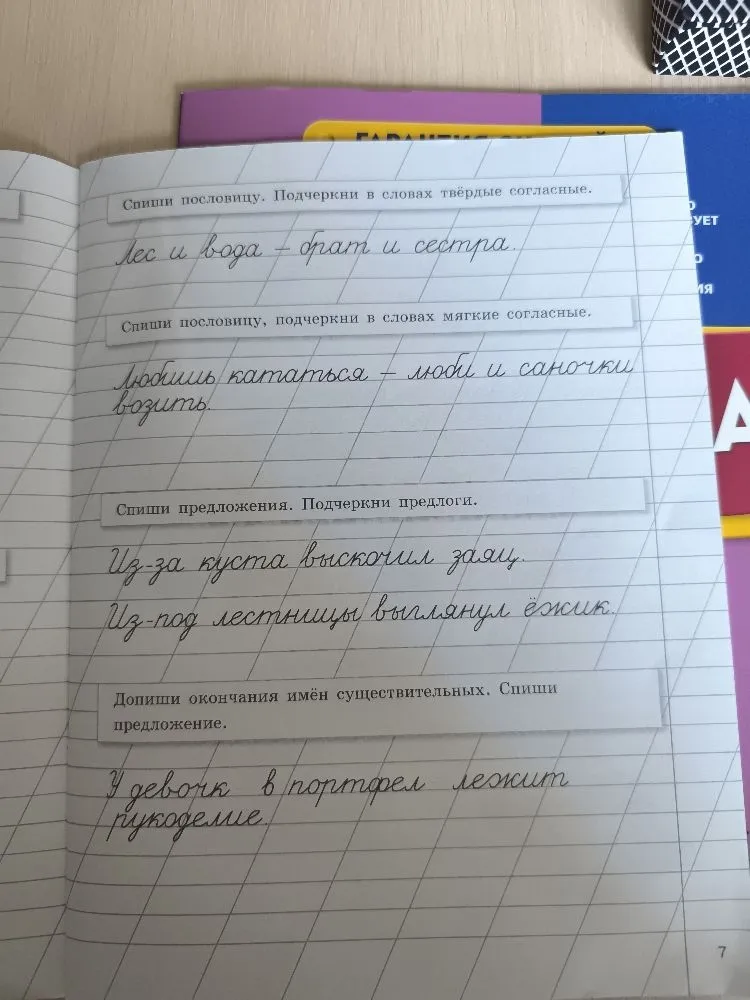 Спиши пословицу. Подчеркни в словах твёрдые согласные.
Лес и вода – брат и сестра.
Спиши пословицу, подчеркни в словах мягкие согласные.
Любишь кататься – люби и саночки
возить.
Спиши предложения. Подчеркни предлоги.
Из-за куста выскочил заяц.
Из-под лестницы выглянул ёжик.
Допиши окончания имён существительных. Спиши
предложение.
У девочк в портфел лежит
рукоделие.
7